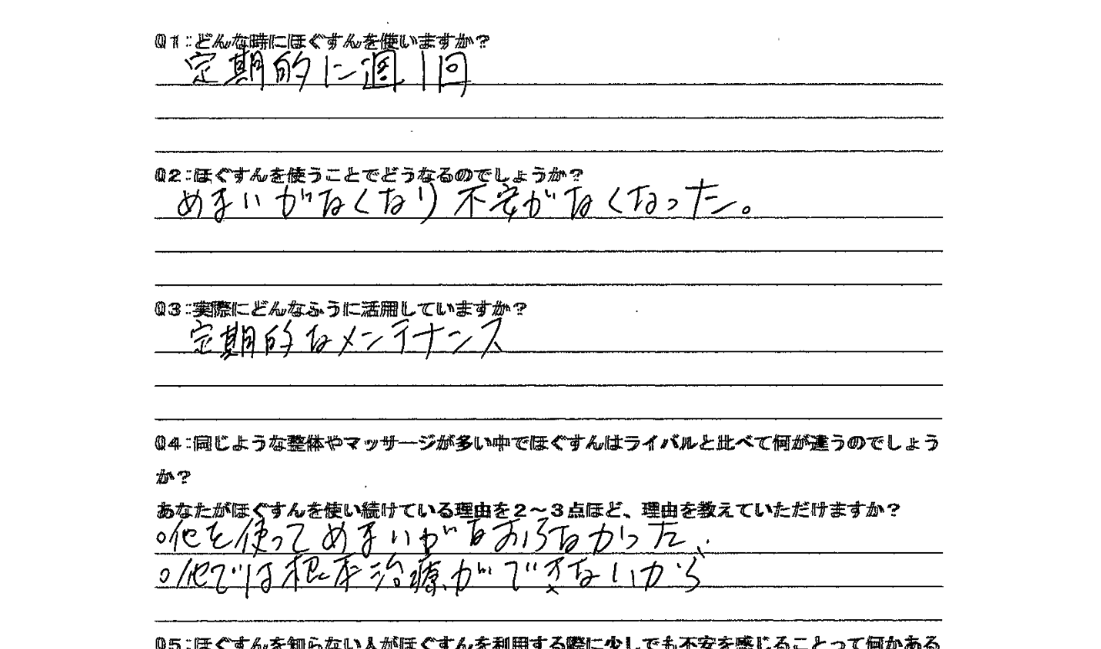 Q1:どんな時にほぐすんを使いますか?
定期的に週1回
Q2:ほぐすんを使うことでどうなるのでしょうか?
めまいがなくなり不安がなくなった。
Q3:実際にどんなふうに活用していますか?
定期的なメンテナンス
Q4:同じような整体やマッサージが多い中でほぐすんはライバルと比べて何が違うのでしょう
か?
あなたがほぐすんを使い続けている理由を2～3点ほど、理由を教えていただけますか?
○他を使ってめまいがなおらなかった
○他では根本治療ができないから
Q5:ほぐすんを知らない人がほぐすんを利用する際に少しでも不安を感じることって何かある